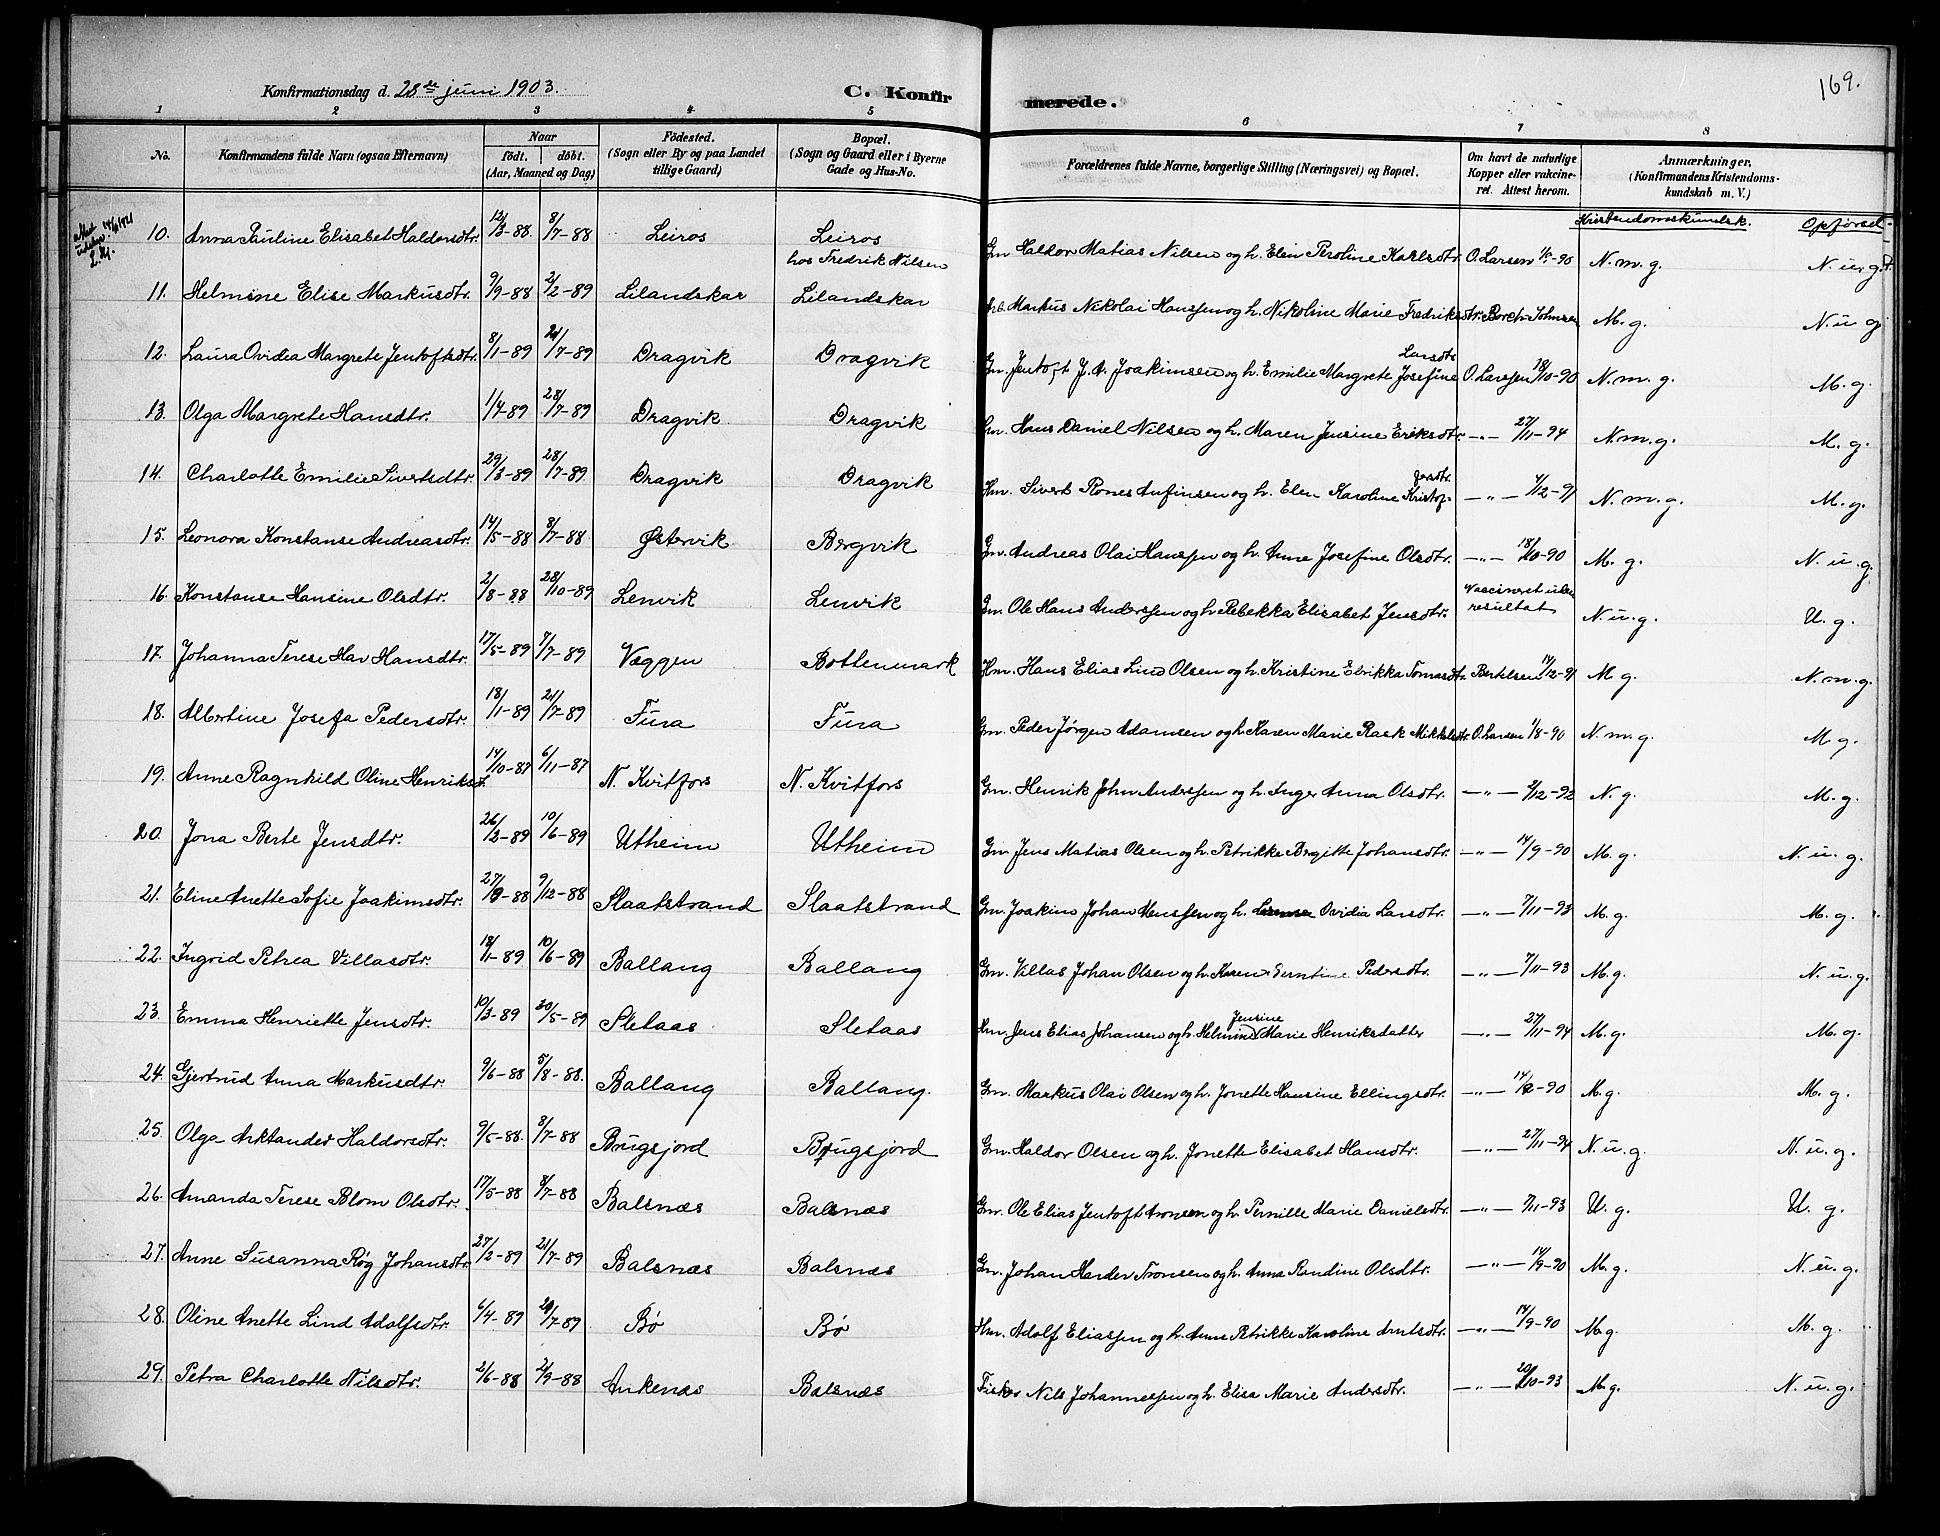 Konfirmationsdag d. 28de juni 1903.
C. Konfirmerede.
169.
1 2 3 4 5 6 7 8
No.
Konfirmandens fulde Navn (ogsaa Efternavn)
Naar
født. døbt.
(Aar, Maaned og Dag)
Födested.
(Sogn eller By og paa Landet
tillige Gaard)
Bopæl.
(Sogn og Gaard eller i Byerne
Gade og Hus-No.
Forældrenes fulde Navne, borgerlige Stilling (Næringsvei) og Bopæl.
Om havt de naturlige
Kopper eller vakcine-
ret. Attest herom.
Anmærkninger.
(Konfirmandens Kristendoms-
kundskab m. V.)
Kristendomskundsk. Opförsel
10. Anna Pauline Elisabet Haldorsdtr. 12/3-88 8/7-88 Leiros Leiros hos Fredrik Nilsen Gm. Haldor Matias Nilsen og h. Elen Peroline Karlsdtr. O. Larsen N. m. g. N. u. g.
11. Helmine Elise Markusdtr. 9/9-88 2/2-89 Lilandskar Lilandskar Arb. Markus Nikolai Hanssen og h. Nikoline Marie Fredriksdtr. Borch-Johnsen M. g. N. u. g.
12. Laura Ovidea Margrete Jentoftsdtr. 8/1-89 21/7-89 Dragvik Dragvik Gm. Jentoft J. A. Joakimsen og h. Emilie Margrete Josefine Larsdtr. O. Larssen 18/10-90 N. m. g. M. g.
13. Olga Margrete Hansdtr. 1/4-89 28/7-89 Dragvik Dragvik Hans Daniel Nilsen og h. Maren Jensine Eriksdtr. -"- 27/11-94 N. m. g. M. g.
14. Charlotte Emilie Sivertsdtr. 29/3-89 28/7-89 Dragvik Dragvik Hm. Sivert Rones Anfinsen og h. Elen Karoline Kristofersdtr. -"- 4/12-91 N. m. g. M. g.
15. Leonora Konstanse Andreasdtr. 14/5-88 8/7-88 Østervik Bergvik Gm. Andreas Olai Hanssen og h. Anne Josefine Olsdtr. -"- 18/10-90 M. g. N. u. g.
16. Konstanse Hansine Olsdtr. 2/8-88 28/10-89 Lenvik Lenvik Gm. Ole Hans Anderssen og h. Rebekka Elisabet Jensdtr. Vaccineret uden resultat N. u. g. U. g.
17. Johanna Terese Hav Hansdtr. 17/5-89 7/7-89 Væggen Bottenmark Hm. Hans Elias Lind Olsen og h. Kristine Elrikka Tomasdtr. Bertelsen 14/12-91 M g. N. m. g.
18. Albertine Josefa Pedersdtr. 18/1-89 21/7-89 Fura Fura Gm. Peder Jørgen Adamsen og h. Karen Marie Rask Mikkelsdtr. O. Larsen 1/8-90 N. m. g. M. g.
19. Anne Ragnhild Oline Henriksd. 14/10-87 6/11-87 N. Kvitfors N. Kvitfors Gm. Henrik John Anderssen og h. Inger Anna Olsdtr. -"- 2/12-92 N. g. M. g.
20. Jona Berte Jensdtr. 26/2-89 10/6-89 Utheim Utheim Gm. Jens Matias Olsen og h. Petrikke Bergitte Johansdtr. -"- 14/9-90 M. g. N. u. g.
21. Eline Anette Sofie Joakimsdtr. 27/9-88 9/12-88 Slaatstrand Slaatstrand Gm. Joakim Johan Henssen og h. Ovidia Larsdtr. -"- 7/11-93 M. g. M. g.
22. Ingrid Petrea Villasdtr. 18/1-89 10/6-89 Ballang Ballang Gm. Villas Johan Olsen og h. Karen Berntine Pedersdtr. -"- 7/11-93 M. g. N. u. g.
23. Emma Henriette Jensdtr. 10/3-89 30/5-89 Sletaas Sletaas Hm. Jens Elias Johansen og h. Helmine Jensine Marie Henriksdatter -"- 27/11-94 M. g. M. g.
24. Gjertrud Anna Markusdtr. 9/6-88 5/8-88. Ballang Ballang. Gm. Markus Olai Olsen og h. Jonette Hansine Ellingsdtr. -"- 14/9-90 M. g. M. g.
25. Olga Arktander Haldorsdtr. 9/5-88. 8/7-88 Brugsjord Brugsjord Gm. Haldor Olsen og h. Jonette Elisabet Hansdtr. -"- 27/11-94 N. u. g. N. u. g.
26. Amanda Terese Blom Olsdtr. 17/5-88 8/7-88 Balsnæs Balsnæs Gm. Ole Elias Jentoft Aronsen og h. Pernille Marie Danielsdtr. -"- 7/11-93 U. g. U. g.
27. Anne Susanna Røg Johansdtr. 27/2-89 21/7-89 Balsnæs Balsnæs Gm. Johan Harder Tronsen og h. Anna Randine Olsdtr. -"- 14/9-90 M. g. N. u. g.
28. Oline Anette Lind Adolfsdtr. 6/4-89 21/7-89 Bø Bø Hm. Adolf Eliassen og h. Anne Petrikke Karoline Arntsdtr. -"- 14/9-90 M. g. M. g.
29. Petra Charlotte Nilsdtr. 2/6-88 2/9-88 Ankenæs Balsnæs Fisker Nils Johannessen og h. Elisa Marie Andersdtr. -"- 20/10-93 M. g. N. u. g.